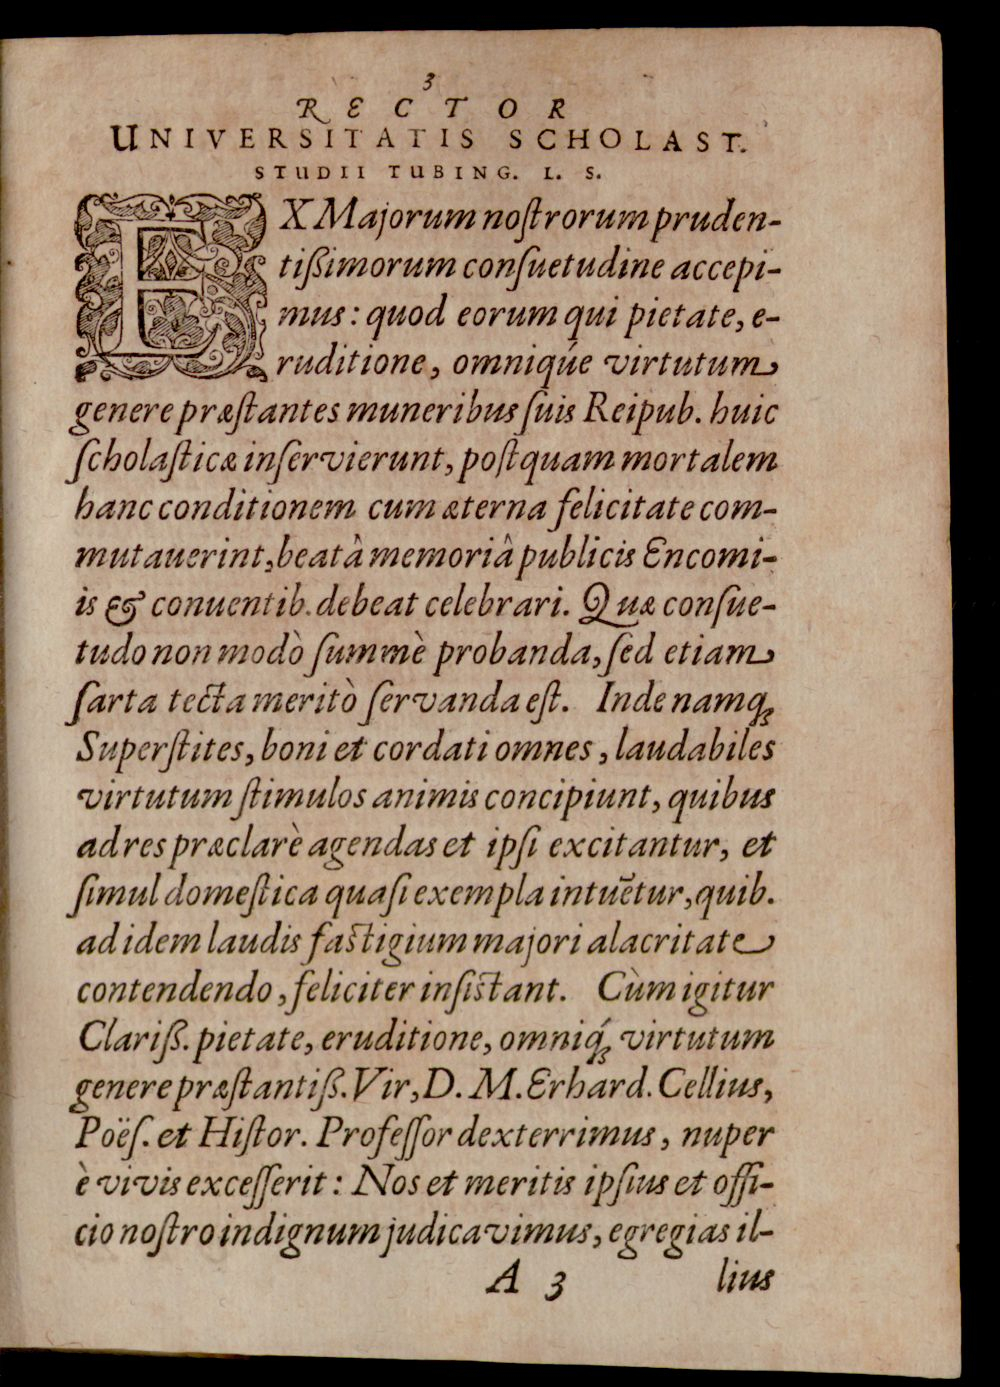 3
RECTOR
UNIVERSITATIS SCHOLAST.
STUDII TUBING. L. S.
EX Majorum noſtrorum pruden-
tißimorum conſuetudine accepi-
mus: quod eorum qui pietate, e-
ruditione, omniqúe virtutum
genere præſtantes muneribus ſuis Reipub. huic
ſcholaſticæ inſervierunt, poſtquam mortalem
hanc conditionem cum æterna felicitate com-
mutauerint, beatâ memoriâ publicis Encomi-
is & conuentib. debeat celebrari. Quæ conſue-
tudo non modò ſummè probanda, ſed etiam
ſarta tecta meritò ſervanda eſt. Inde namq́;
Superſtites, boni et cordati omnes, laudabiles
virtutum ſtimulos animis concipiunt, quibus
ad res præclarè agendas et ipſi excitantur, et
ſimul domeſtica quaſi exempla intuētur, quib.
ad idem laudis faſtigium majori alacritate
contendendo, feliciter inſiſtant. Cùm igitur
Clariß. pietate, eruditione, omniq́; virtutum
genere præſtantiß. Vir, D. M. Erhard. Cellius,
Poëſ. et Hiſtor. Profeſſor dexterrimus, nuper
è vivis exceſſerit: Nos et meritis ipſius et offi-
cio noſtro indignum judicavimus, egregias il-
A 3 lius